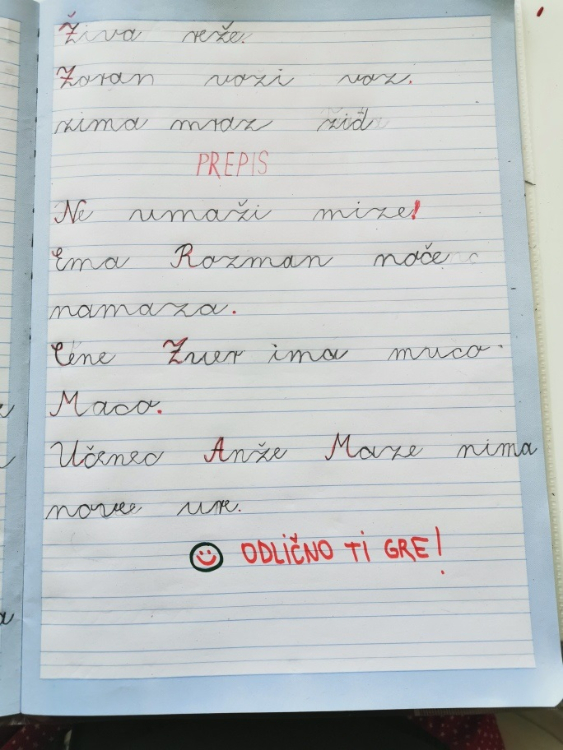 Živa reže.
Zoran vozi voz.
zima mraz
PREPIS
Ne umaži mize!
Ema Rozman noče
namaza.
Cene Zver ima muco
Maco.
Učenec Anže Maze nima
nove ure.
ODLIČNO TI GRE!